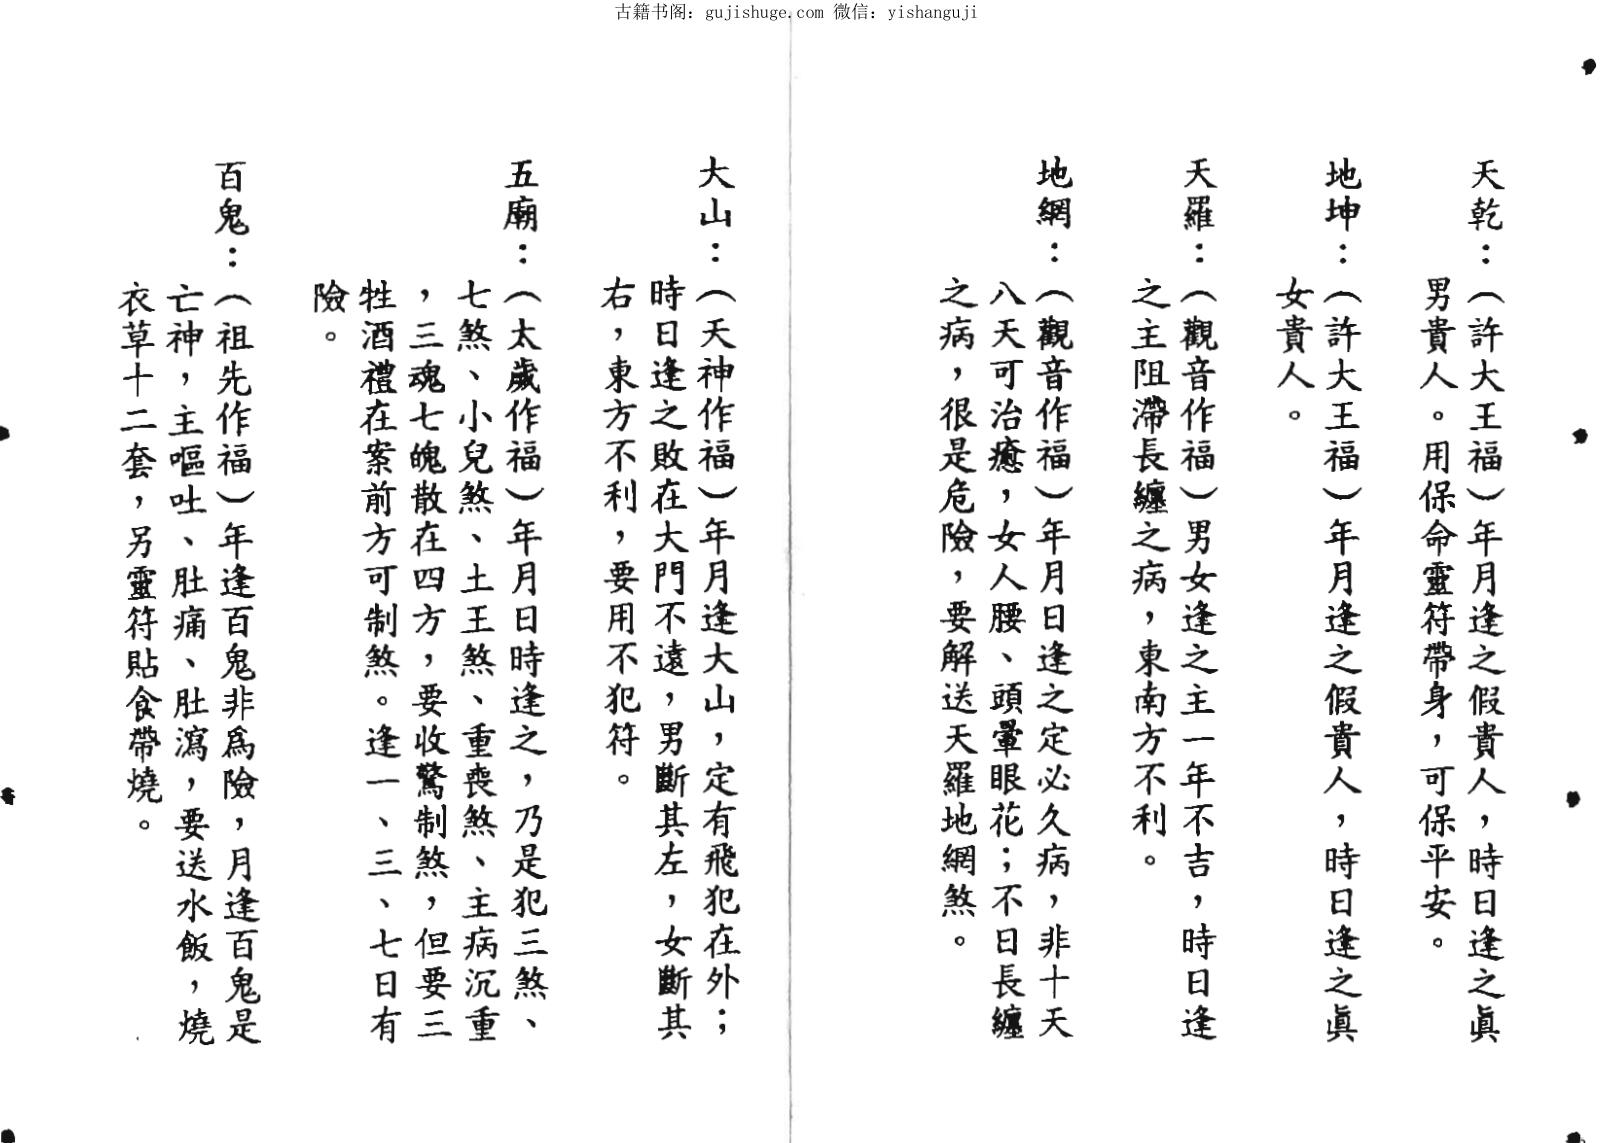 古籍书阁：gujishuge.com 微信：yishanguji
天乾：（許大王福）年月逢之假貴人，時日逢之眞
男貴人。用保命靈符帶身，可保平安。
地坤：（許大王福）年月逢之假貴人，時日逢之眞
女貴人。
天羅：（觀音作福）男女逢之主一年不吉，時日逢
之主阻滯長纏之病，東南方不利。
地網：（觀音作福）年月日逢之定必久病，非十天
八天可治癒，女人腰、頭暈眼花；不日長纏
之病，很是危險，要解送天羅地網煞。
大山：（天神作福）年月逢大山，定有飛犯在外；
時日逢之敗在大門不遠，男斷其左，女斷其
右，東方不利，要用不犯符。
五廟：（太歲作福）年月日時逢之，乃是犯三煞、
七煞、小兒煞、土王煞、重喪煞、主病沉重
，三魂七魄散在四方，要收驚制煞，但要三
牲酒禮在案前方可制煞。逢一、三、七日有
險。
百鬼：（祖先作福）年逢百鬼非爲險，月逢百鬼是
亡神，主嘔吐、肚痛、肚瀉，要送水飯，燒
衣草十二套，另靈符貼食帶燒。